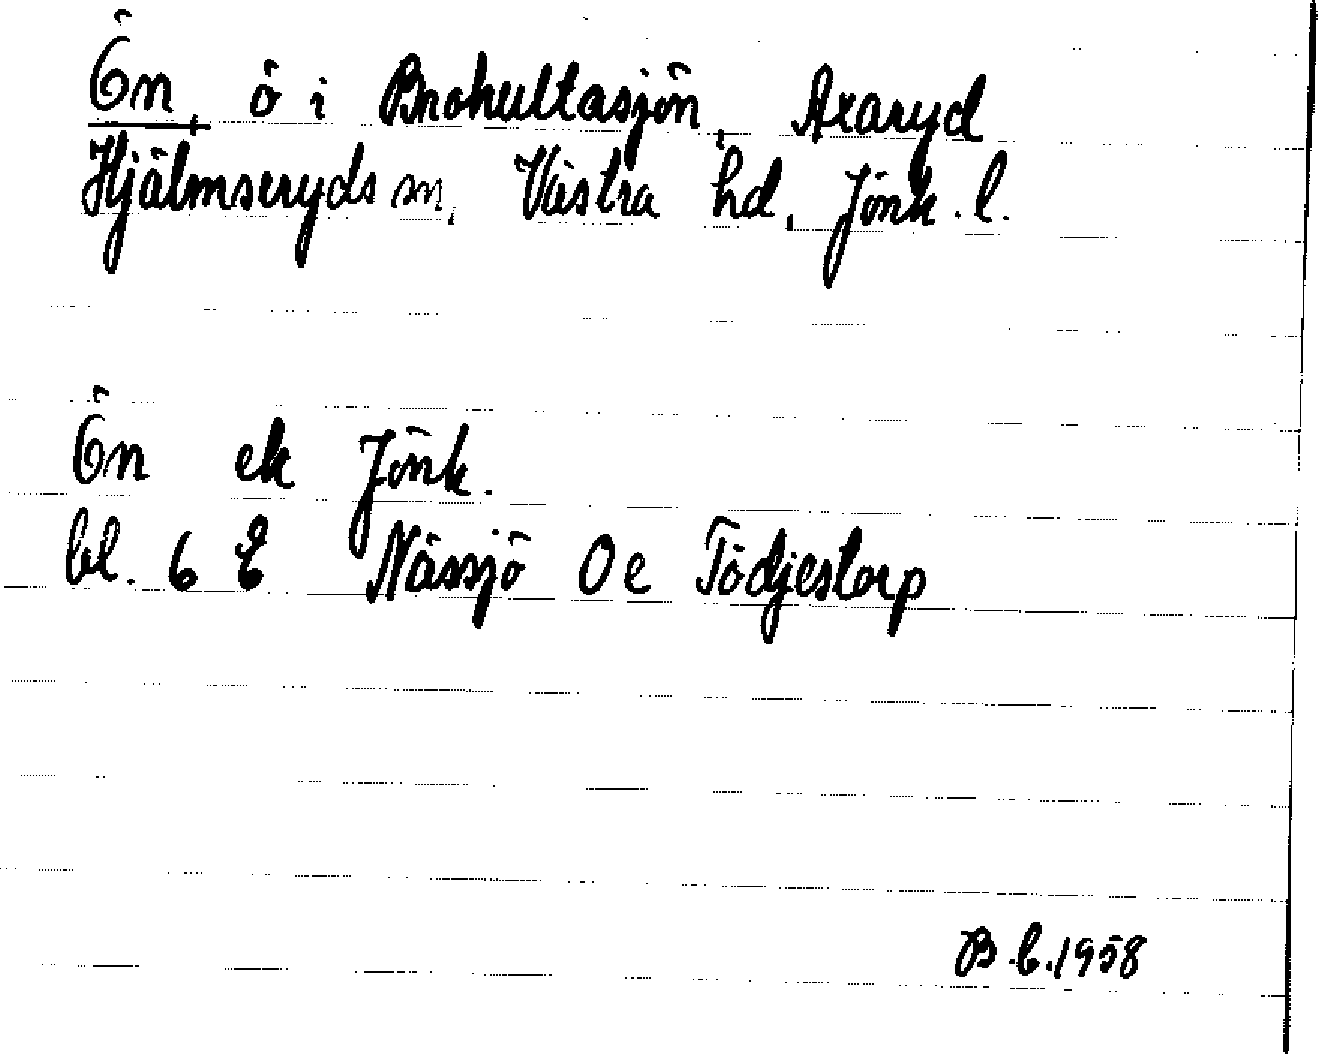 Ön, ö i Brohultasjön, Axaryd
Hjälmseryds sn, Västra hd, Jönk. l.
Ön ek Jönk.
bl. 6 E Nässjö Oe Tödjestorp
B.E.1958